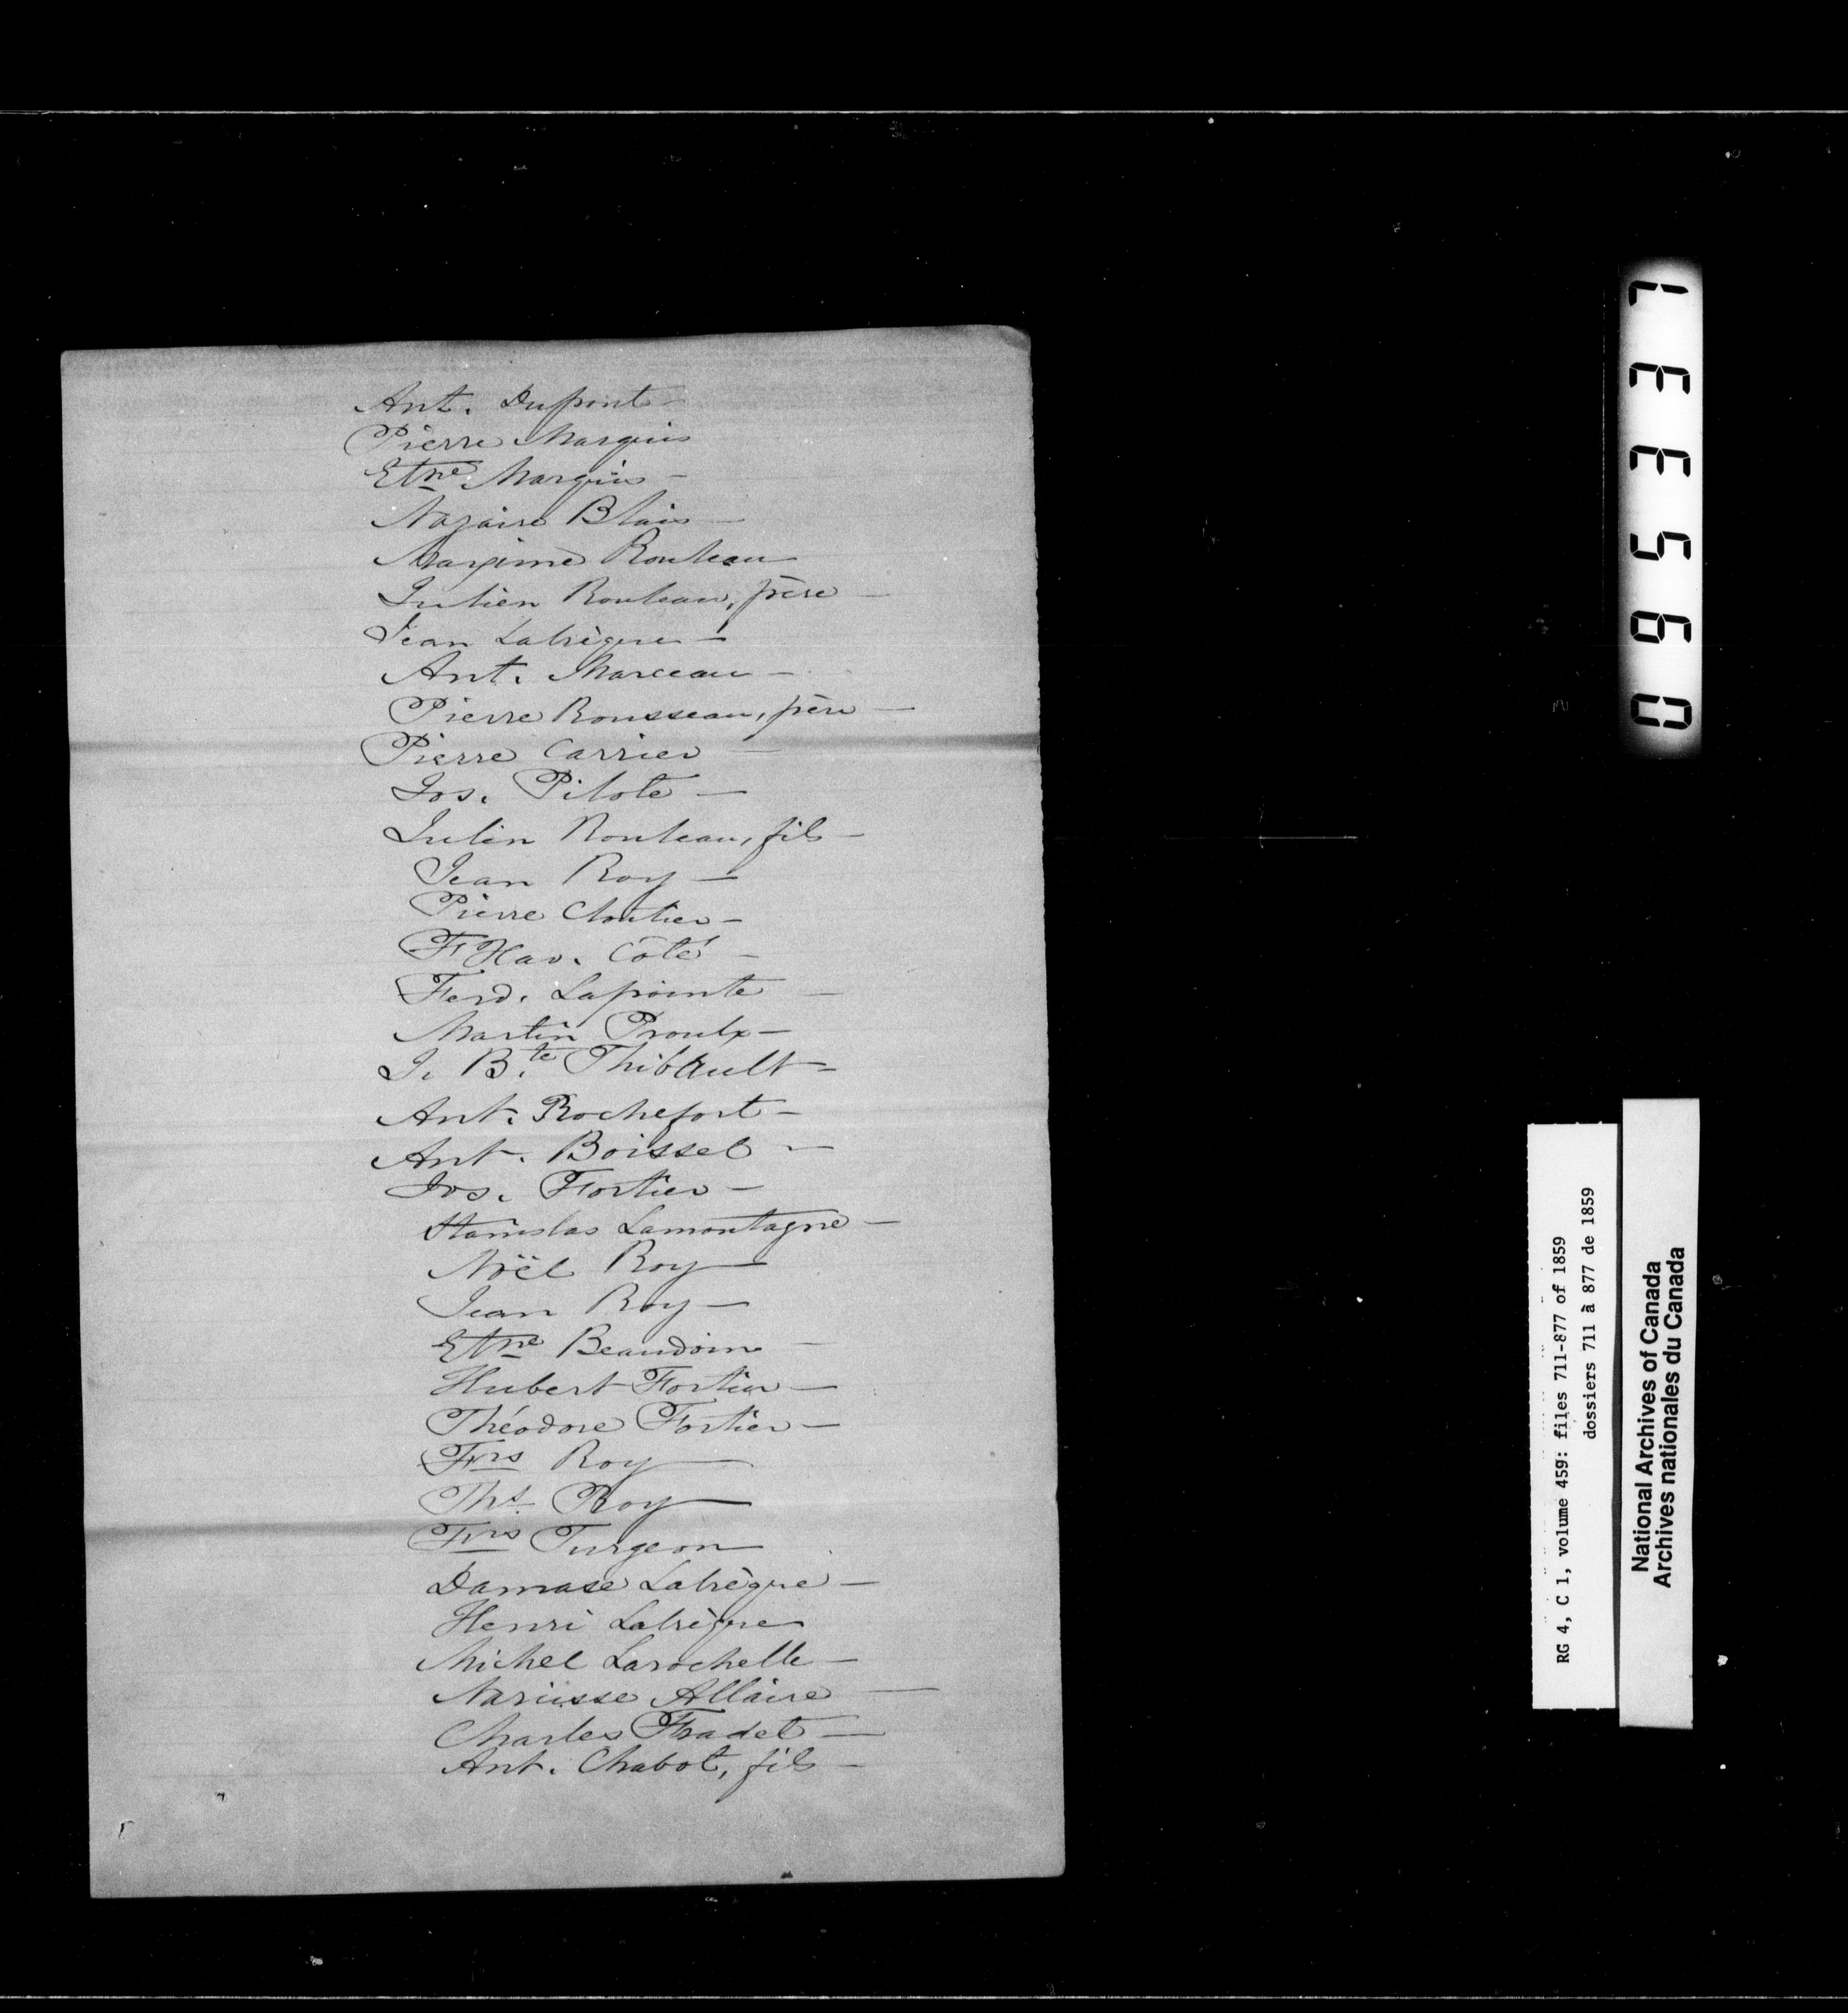 Ant. Dupont –
Pierre Marquis
Etne Marquis –
Nazaire Blais –
Maxime Rouleau
Julien Rouleau, père –
Jean Labrègue –
Ant. Marceau –
Pierre Rousseau, père –
Pierre Carrier –
Jos. Pilote –
Julien Rouleau, fils –
Jean Roy –
Pierre Cloutier –
F Xav. Côté –
Ferd. Lapointe –
Martin Proulx –
J. Bte Thibault –
Ant. Rochefort –
Ant. Boissel –
Jos. Fortier –
Stanislas Lamontagne –
Noël Roy –
Jean Roy –
Etne Beaudoin –
Hubert Fortier –
Théodore Fortier –
Frs Roy –
Ths Roy –
Frs Turgeon
Damase Labrègue –
Henri Labrègue
Michel Larochelle –
Narcisse Allaire –
Charles Fradet –
Ant. Chabot, fils –
065331
RG 4, C 1, volume 459: files 711-877 of 1859
dossiers 711 à 877 de 1859
National Archives of Canada
Archives nationales du Canada